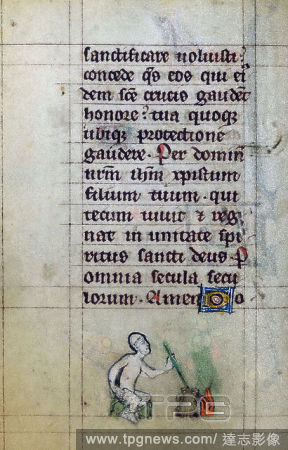 sanctificare voluisti.
concede qs eos qui ei
dem sce crucis gaudet
honore: tua quoque
ubique protectione
gaudere. Per dominu
nrm ihm xpistum
filium tuum. qui
tecum vivit & reg
nat in unitate spi
ritus sancti deus P
omnia secula secu
lorum. Amen O
TPG
www.tpgnews.com/ 達志影像